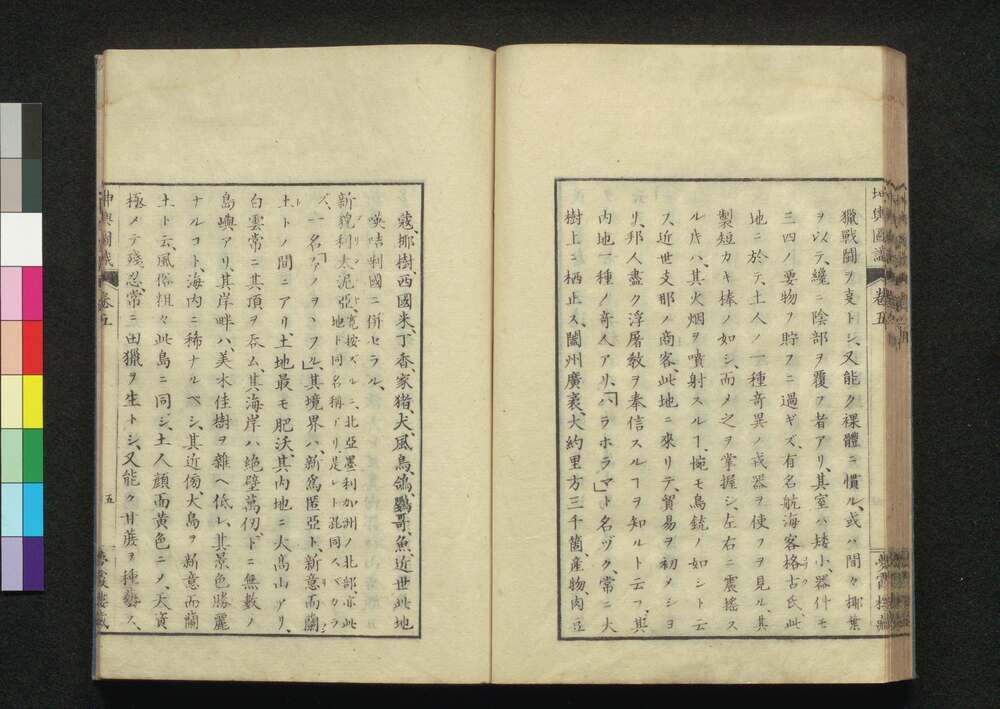 坤輿圖識 卷五
獵戰鬪ヲ專トシ、又能ク裸體ニ慣ル、或ハ間々揶葉
ヲ以テ、纔ニ陰部ヲ覆フ者アリ、其室ハ矮小、器什モ
三四ノ要物ヲ貯フニ過ギズ、有名航海客格古氏、此
地ニ於テ、土人ノ一種奇異ノ戎器ヲ使フヲ見ル、其
製短カキ棒ノ如シ、而メ之ヲ掌握シ、左右ニ震搖ス
ル片ハ、其火烟ヲ噴射スルヿ、惋モ鳥銃ノ如シト云
ス近世支那ノ商客、此地ニ來リテ、貿易ヲ初メシヨ
リ、邦人盡ク浮屠敎ヲ奉信スルヿヲ知ルト云フ、其
内地一種ノ奇人アリ、「ハラホラ」マト名ヅク、常ニ大
樹上ニ栖止ス、闔州廣袤、大約里方三千箇、産物、肉豆
蔻、揶樹、西國米、丁香、家猪、犬、風鳥、鴿、鸚哥、魚、近世此地
喚咭唎國ニ併セラル、
新貌利太泥亞、寬按ズルニ、北亞墨利加洲ノ北部、亦此地ト同名稱アリ、是レト混同スベカラ
ズ、一名「ノヲハフル」其境界ハ、新爲匿亞ト、新意而蘭
土トノ間ニアリ、土地最モ肥沃、其内地ニ大高山アリ、
白雲常ニ其頂ヲ呑ム、其海岸ハ絶壁萬仞、下ニ無數ノ
島嶼アリ、其岸畔ハ、美木佳樹ヲ雜ヘ低レ、其景色勝麗
ナルコト、海内ニ稀ナルベシ、其近傍、大島ヲ新意而蘭
土ト云、風俗粗々此島ニ同ジ、土人顔面黄色ニノ、天資
極メテ殘忍、常ニ田獵ヲ生トシ、又能ク甘蔗ヲ種藝ス、
坤輿圖識 卷五 五